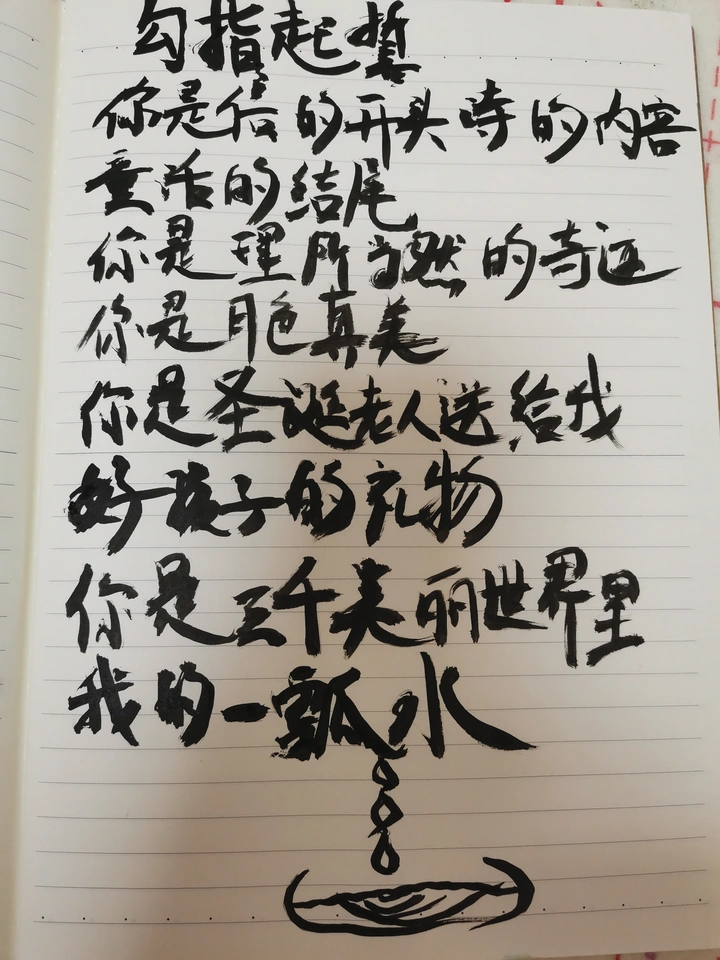 勾指起誓
你是信的开头诗的内容
童话的结尾
你是理所当然的奇迹
你是月色真美
你是圣诞老人送给我
好孩子的礼物
你是三千美丽世界里
我的一瓢水